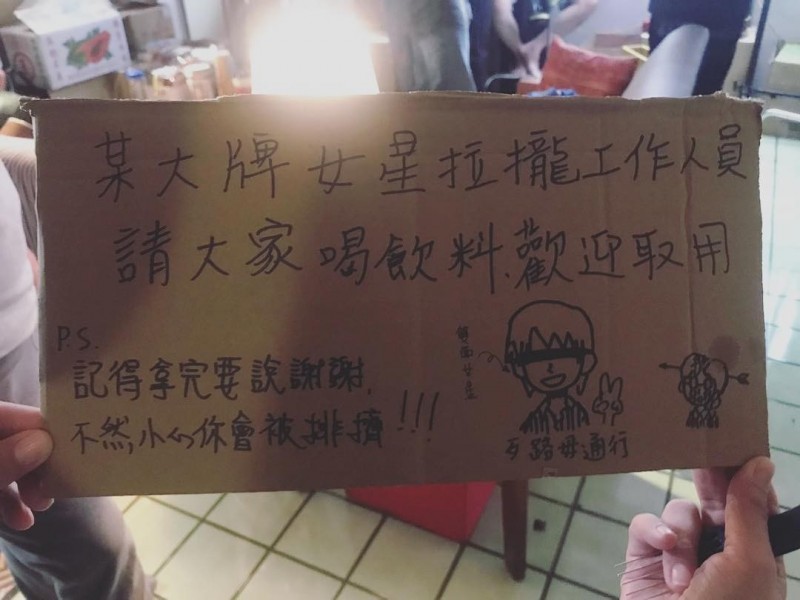 某大牌女星拉攏工作人員
請大家喝飲料.歡迎取用
P.S.
記得拿完要說謝謝,
不然,小心你會被排擠!!!
歹路毋通行